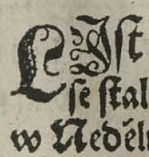 LIſt
ſe ſtal
w Neděli